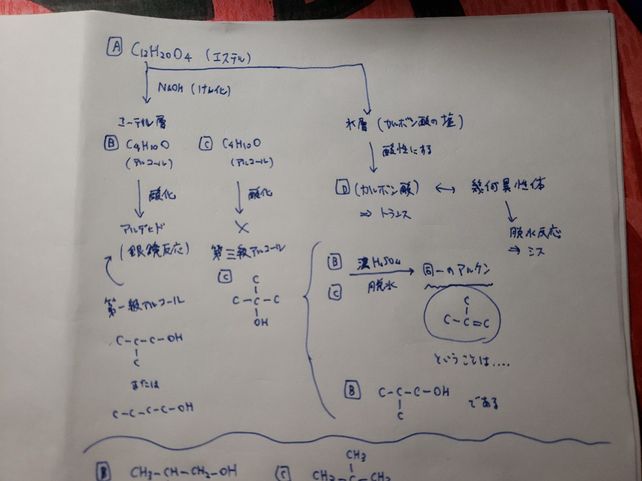 A C12H20O4 (エステル)
NaOH (けん化)
エーテル層
水層 (カルボン酸の塩)
B C4H10O
(アルコール)
C C4H10O
(アルコール)
酸性にする
酸化
酸化
D (カルボン酸) ↔ 幾何異性体
⇒ トランス
アルデヒド
(銀鏡反応)
×
第三級アルコール
脱水反応
⇒ シス
C
C
C-C-C
OH
B
C
濃H2SO4
脱水
同一のアルケン
C
C-C=C
第一級アルコール
C-C-C-OH
C
または
C-C-C-C-OH
ということは....
B C-C-C-OH である
C
B CH3-CH-CH2-OH
C CH3